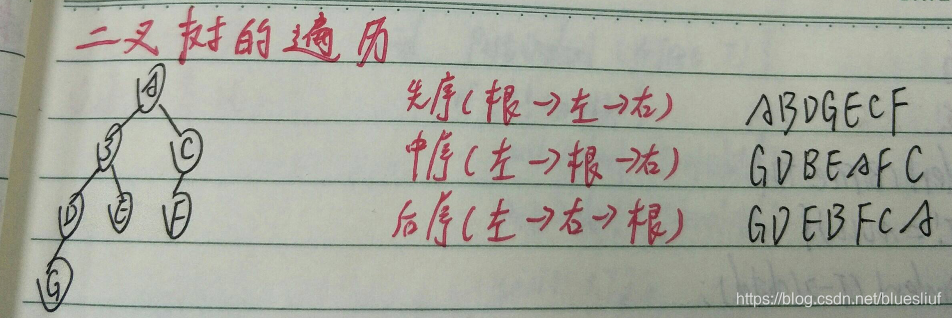 二叉树的遍历
A
先序(根→左→右) ABDGECF
B C
中序(左→根→右) GDBEAFC
D E F
后序(左→右→根) GDEBFCA
G
https://blog.csdn.net/bluesliuf